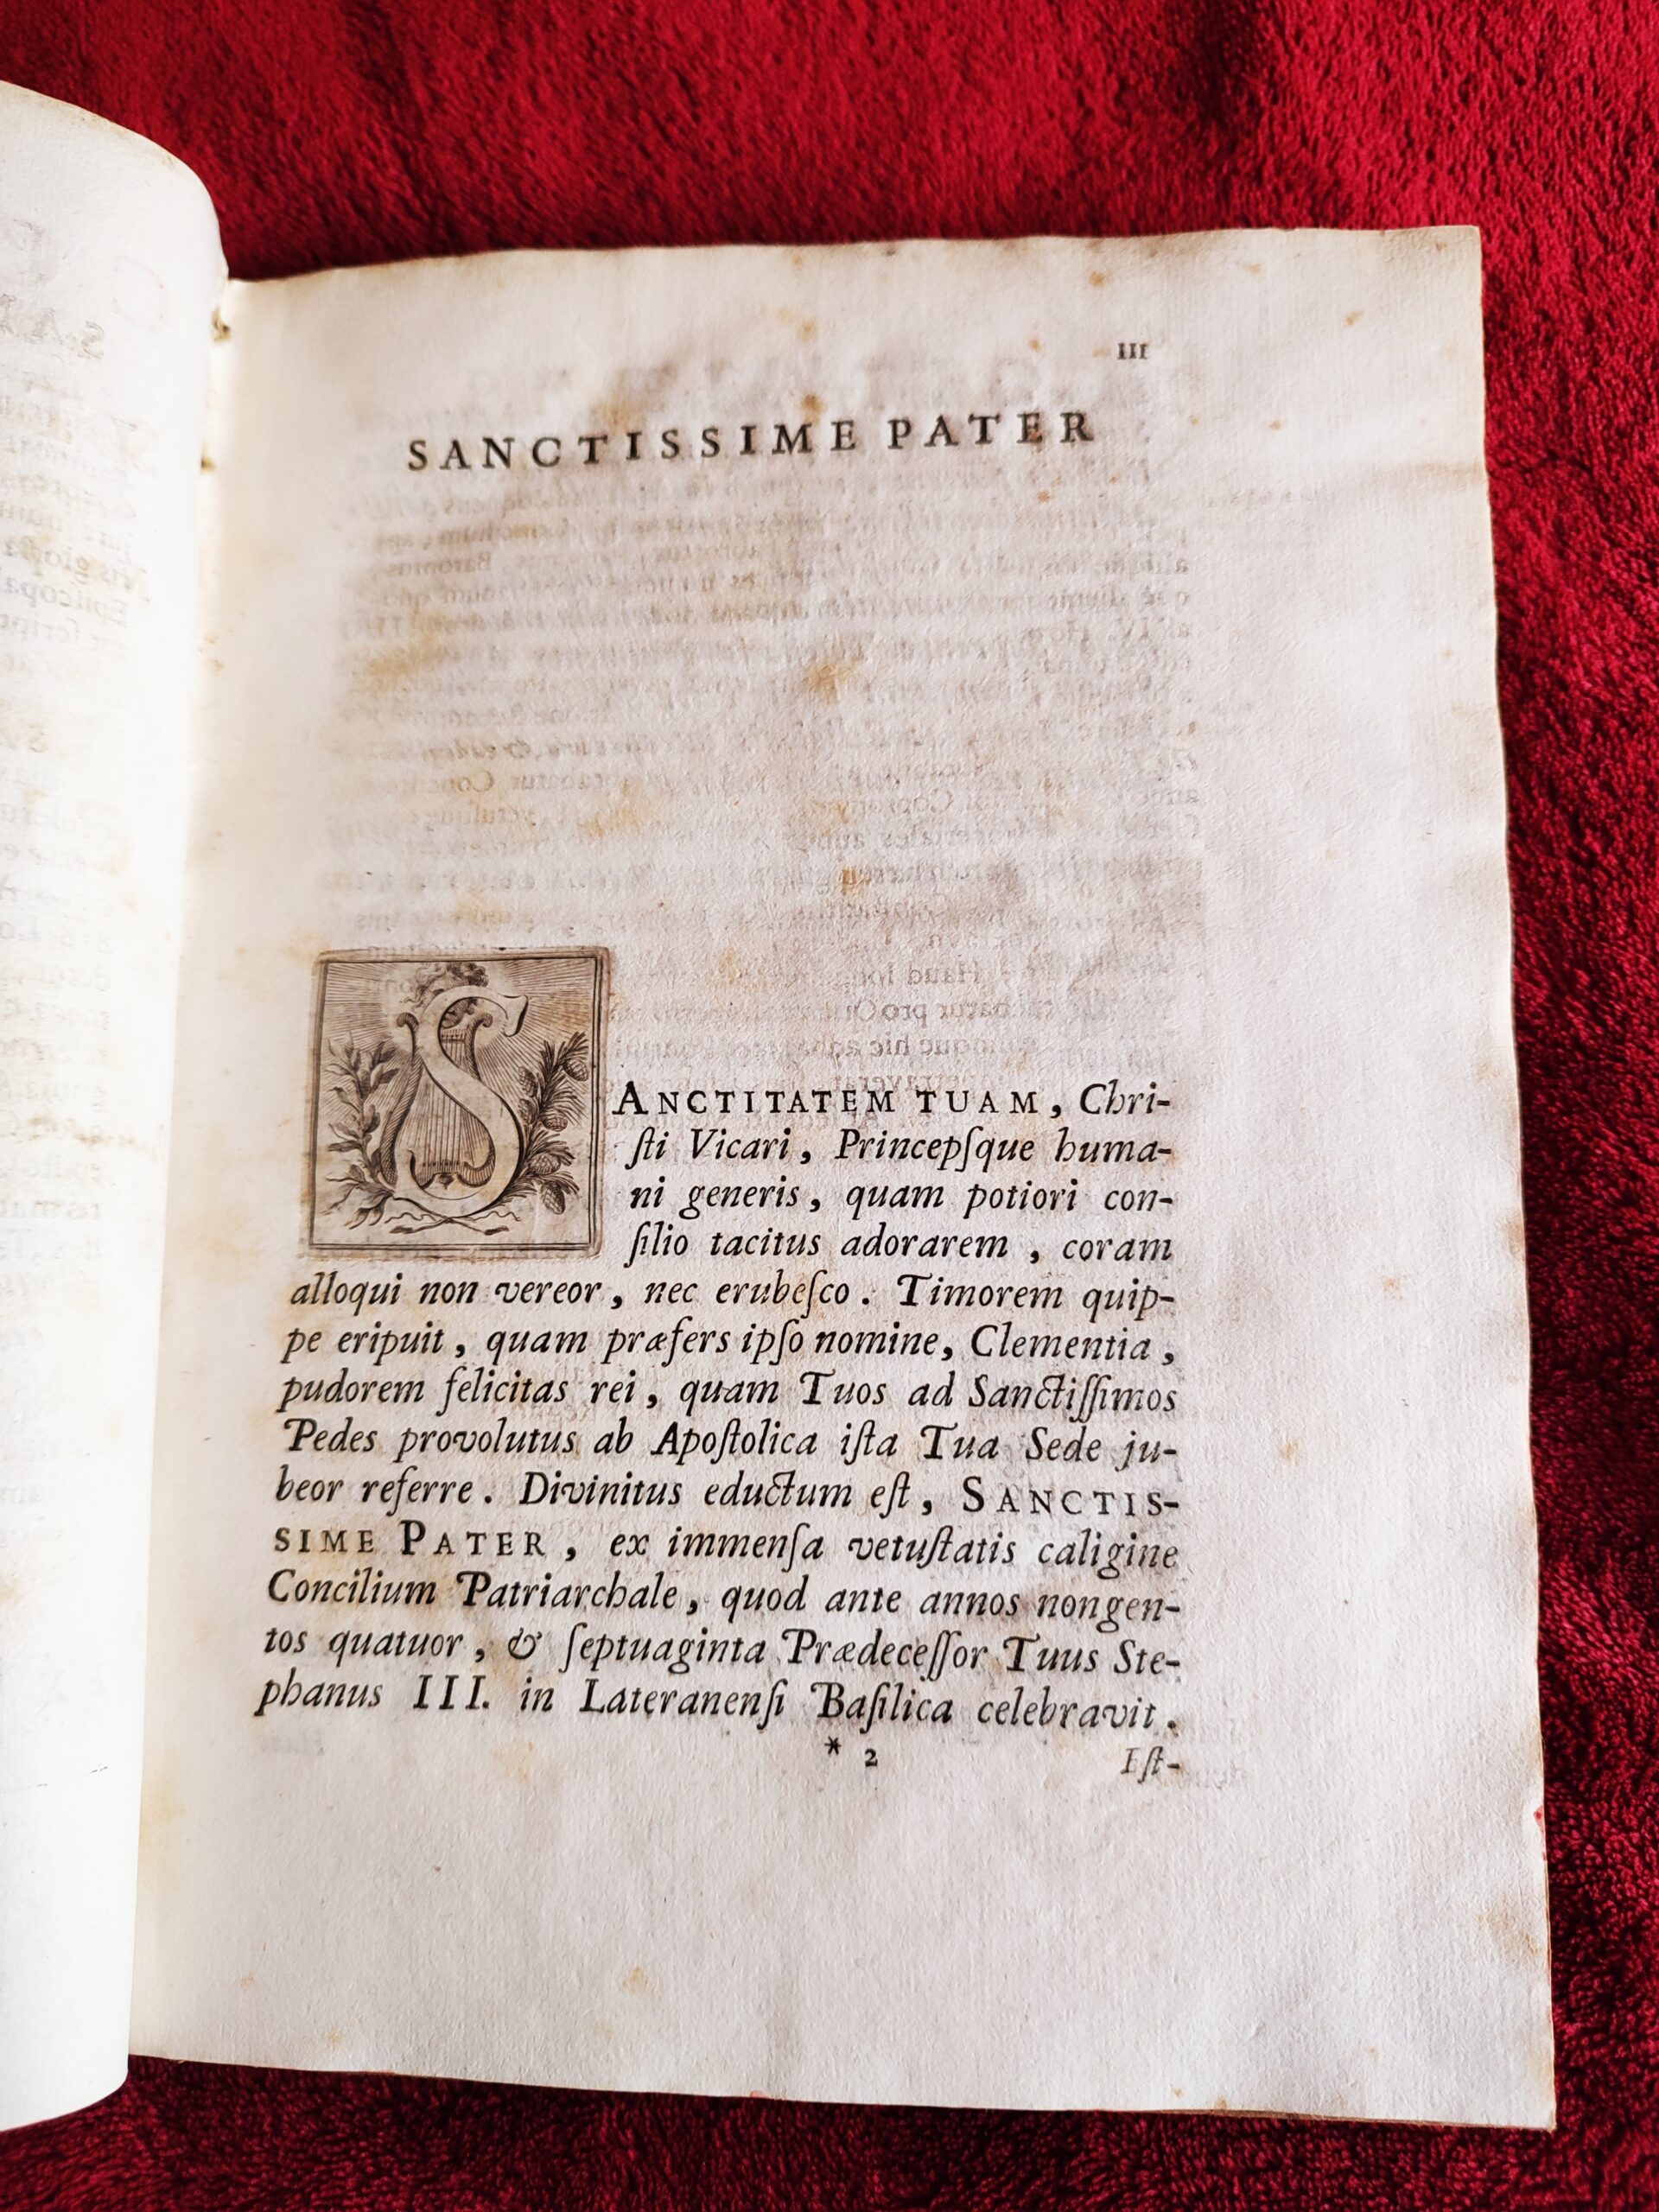 III
SANCTISSIME PATER
SANCTITATEM TUAM, Chri-
ſti Vicari, Princepſque huma-
ni generis, quam potiori con-
ſilio tacitus adorarem, coram
alloqui non vereor, nec erubeſco. Timorem quip-
pe eripuit, quam præfers ipſo nomine, Clementia,
pudorem felicitas rei, quam Tuos ad Sanctiſſimos
Pedes provolutus ab Apoſtolica iſta Tua Sede ju-
beor referre. Divinitus eductum eſt, SANCTIS-
SIME PATER, ex immenſa vetuſtatis caligine
Concilium Patriarchale, quod ante annos nongen-
tos quatuor, & ſeptuaginta Prædeceſſor Tuus Ste-
phanus III. in Lateranenſi Baſilica celebravit.
* 2 Iſt-